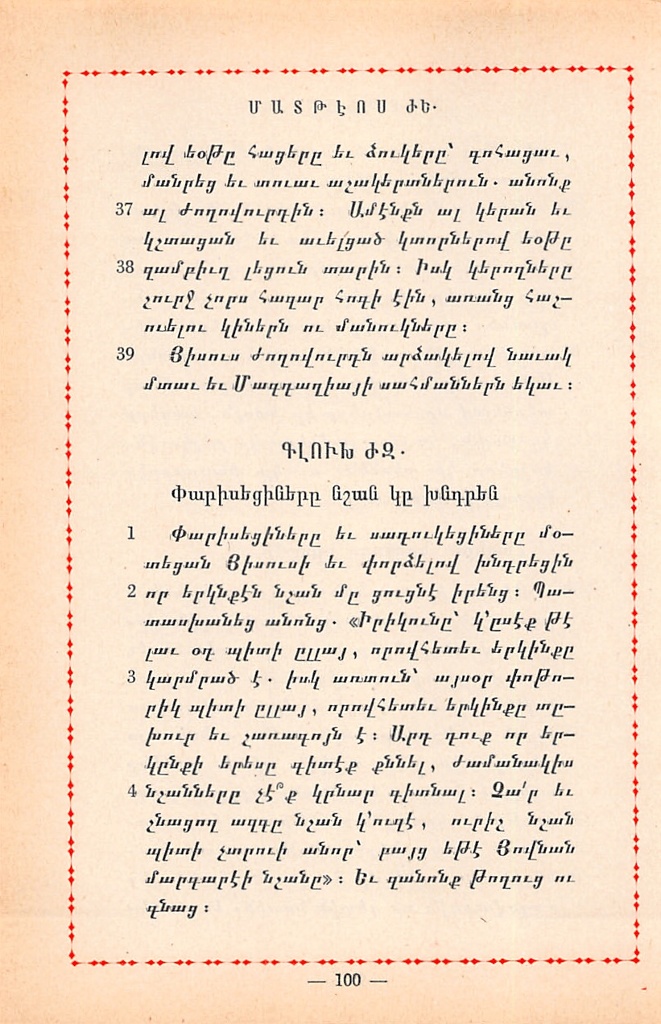 ՄԱՏԹԷՈՍ ԺԵ.
լով եօթը հացերը եւ ձուկերը՝ գոհացաւ,
մանրեց եւ տուաւ աշակերտներուն. անոնք
37 ալ ժողովուրդին: Ամէնքն ալ կերան եւ
կշտացան եւ աւելցած կտորներով եօթը
38 զամբիւղ լեցուն տարին: Իսկ կերողները
շուրջ չորս հազար հոգի էին, առանց հաշ–
ուելու կիներն ու մանուկները:
39 Յիսուս ժողովուրդն արձակելով նաւակ
մտաւ եւ Մագդաղիայի սահմաններն եկաւ:
ԳԼՈՒԽ ԺԶ.
Փարիսեցիները նշան կը խնդրեն
1 Փարիսեցիները եւ սադուկեցիները մօ–
տեցան Յիսուսի եւ փորձելով խնդրեցին
2 որ երկնքէն նշան մը ցուցնէ իրենց: Պա–
տասխանեց անոնց. «Իրիկունը՝ կ'ըսէք թէ
լաւ օդ պիտի ըլլայ, որովհետեւ երկինքը
3 կարմրած է. իսկ առտուն՝ այսօր փոթո–
րիկ պիտի ըլլայ, որովհետեւ երկինքը տը–
խուր եւ շառագոյն է: Արդ դուք որ եր–
կընքի երեսը գիտէք քննել, ժամանակիս
4 նշանները չէ՞ք կրնար գիտնալ: Չա՛ր եւ
շնացող ազգը նշան կ'ուզէ, ուրիշ նշան
պիտի չտրուի անոր՝ բայց եթէ Յովնան
մարգարէի նշանը»: Եւ զանոնք թողուց ու
գնաց:
— 100 —